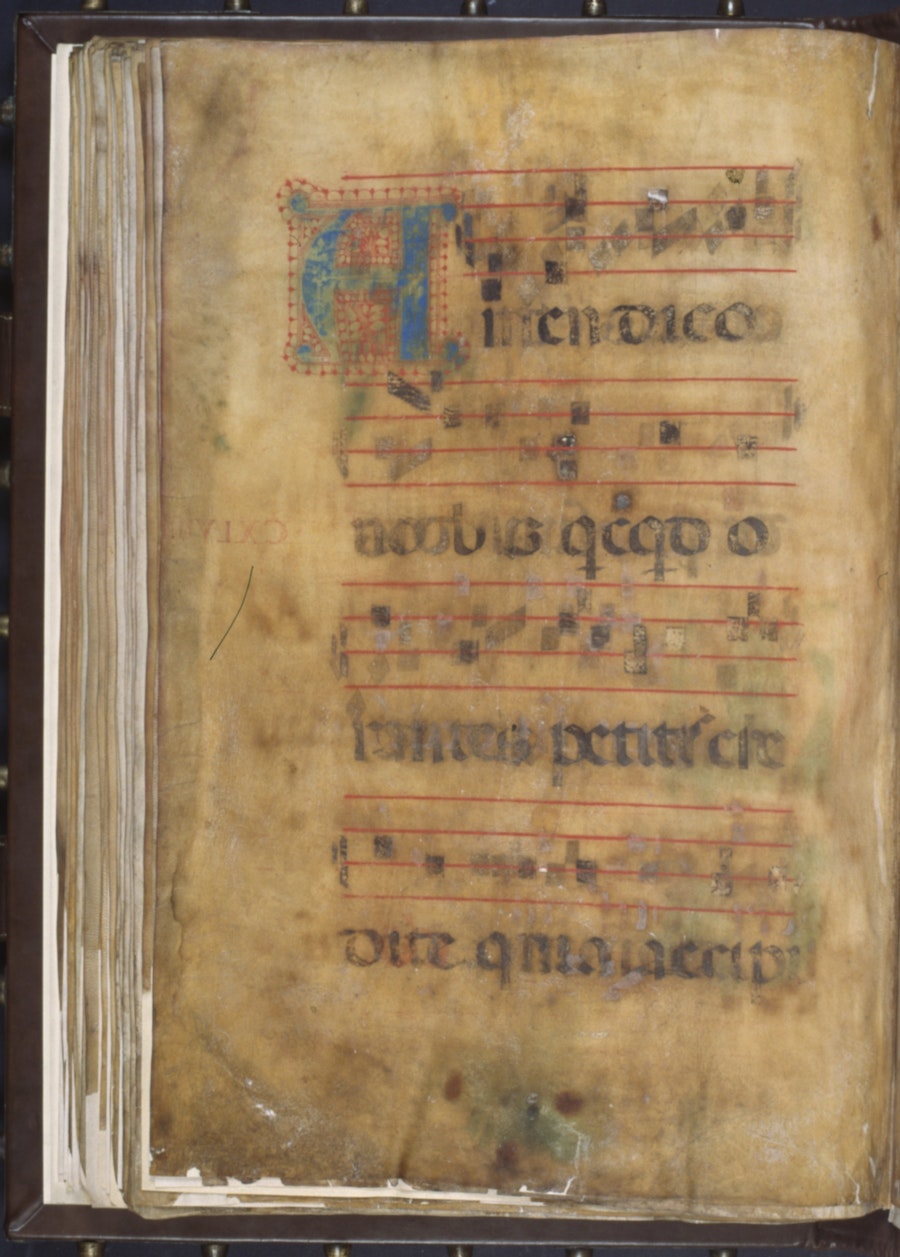 Amen dico
uobis qcqd o
rantes petitis cre
dite quia accipi